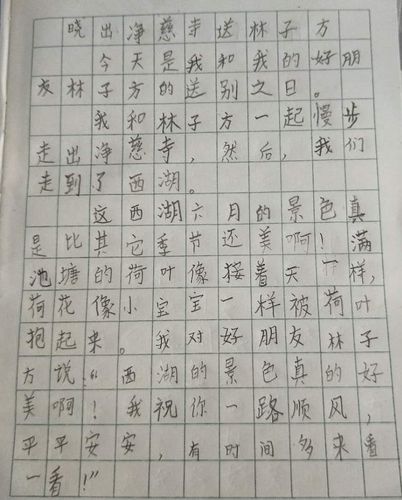 晓出净慈寺送林子方
今天是我和我的好朋
友林子方的送别之日。
我和林子方一起慢步
走出净慈寺，然后，我们
走到了西湖。
这西湖六月的景色真
是比其它季节还美啊！满
池塘的荷叶像接着天一样，
荷花像小宝宝一样被荷叶
抱起来。我对好朋友林子
方说“西湖的景色真的好
美啊！我祝你一路顺风，
平平安安，有时间多来看
一看！”